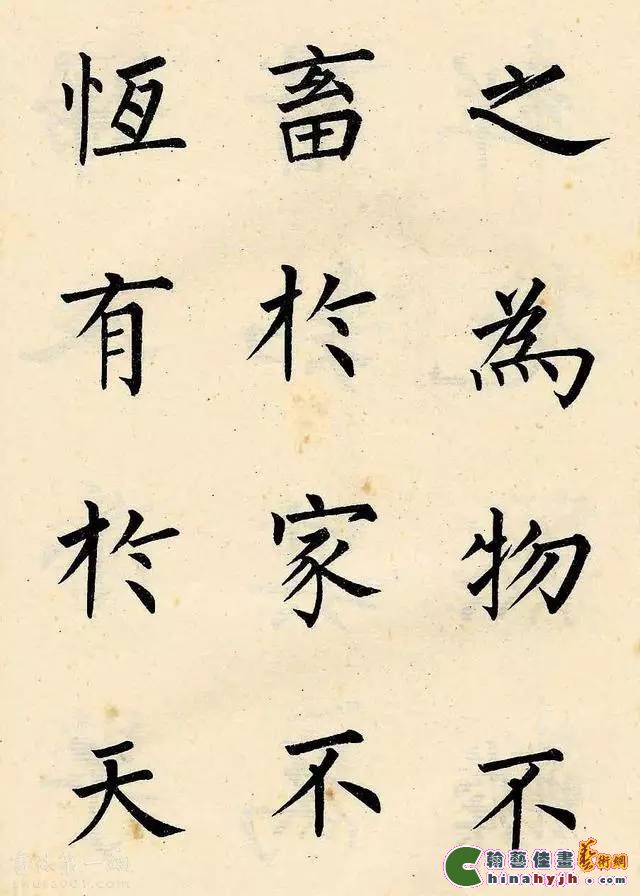 之為物不
畜於家不
恆有於天
翰藝佳畫藝術網
Chinahyjh.com